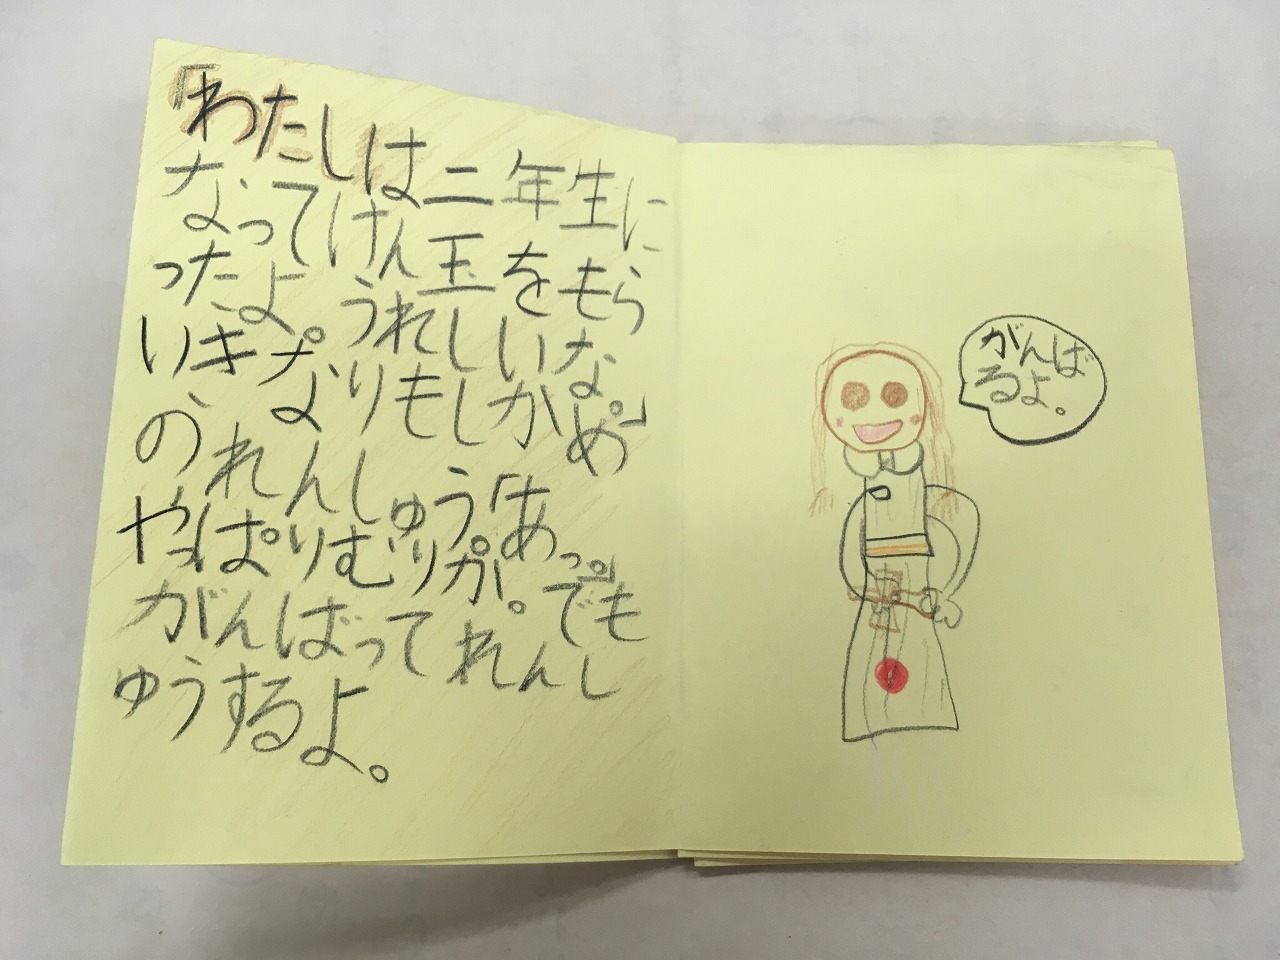 「わたしは二年生に
なってけん玉をもら
ったよ。うれしいな。」
いきなりもしかめ
のれんしゅう。「あっ。」
やっぱりむりか。でも
がんばってれんし
ゅうするよ。
がんば
るよ。